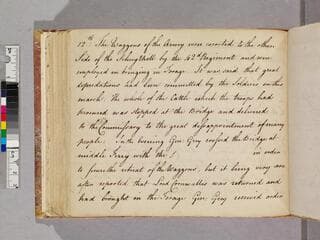 12th. The Waggons of the Army were escorted to the other
Side of the Schuylkill by the 42d Regiment and were
employed in bringing in Forage. It was said that great
depredations had been committed by the Soldiers on this
march. The whole of the Cattle which the troops had
procured was stopped at the Bridge and delivered
to the Commissary to the great disappointment of many
people. In the evening Genl. Grey crossed the Bridge at
middle Ferry with the in order
to secure the retreat of the Waggons, but it being very soon
after reported that Lord Cornwallis was returned and
had brought on the Forage Genl. Grey received orders